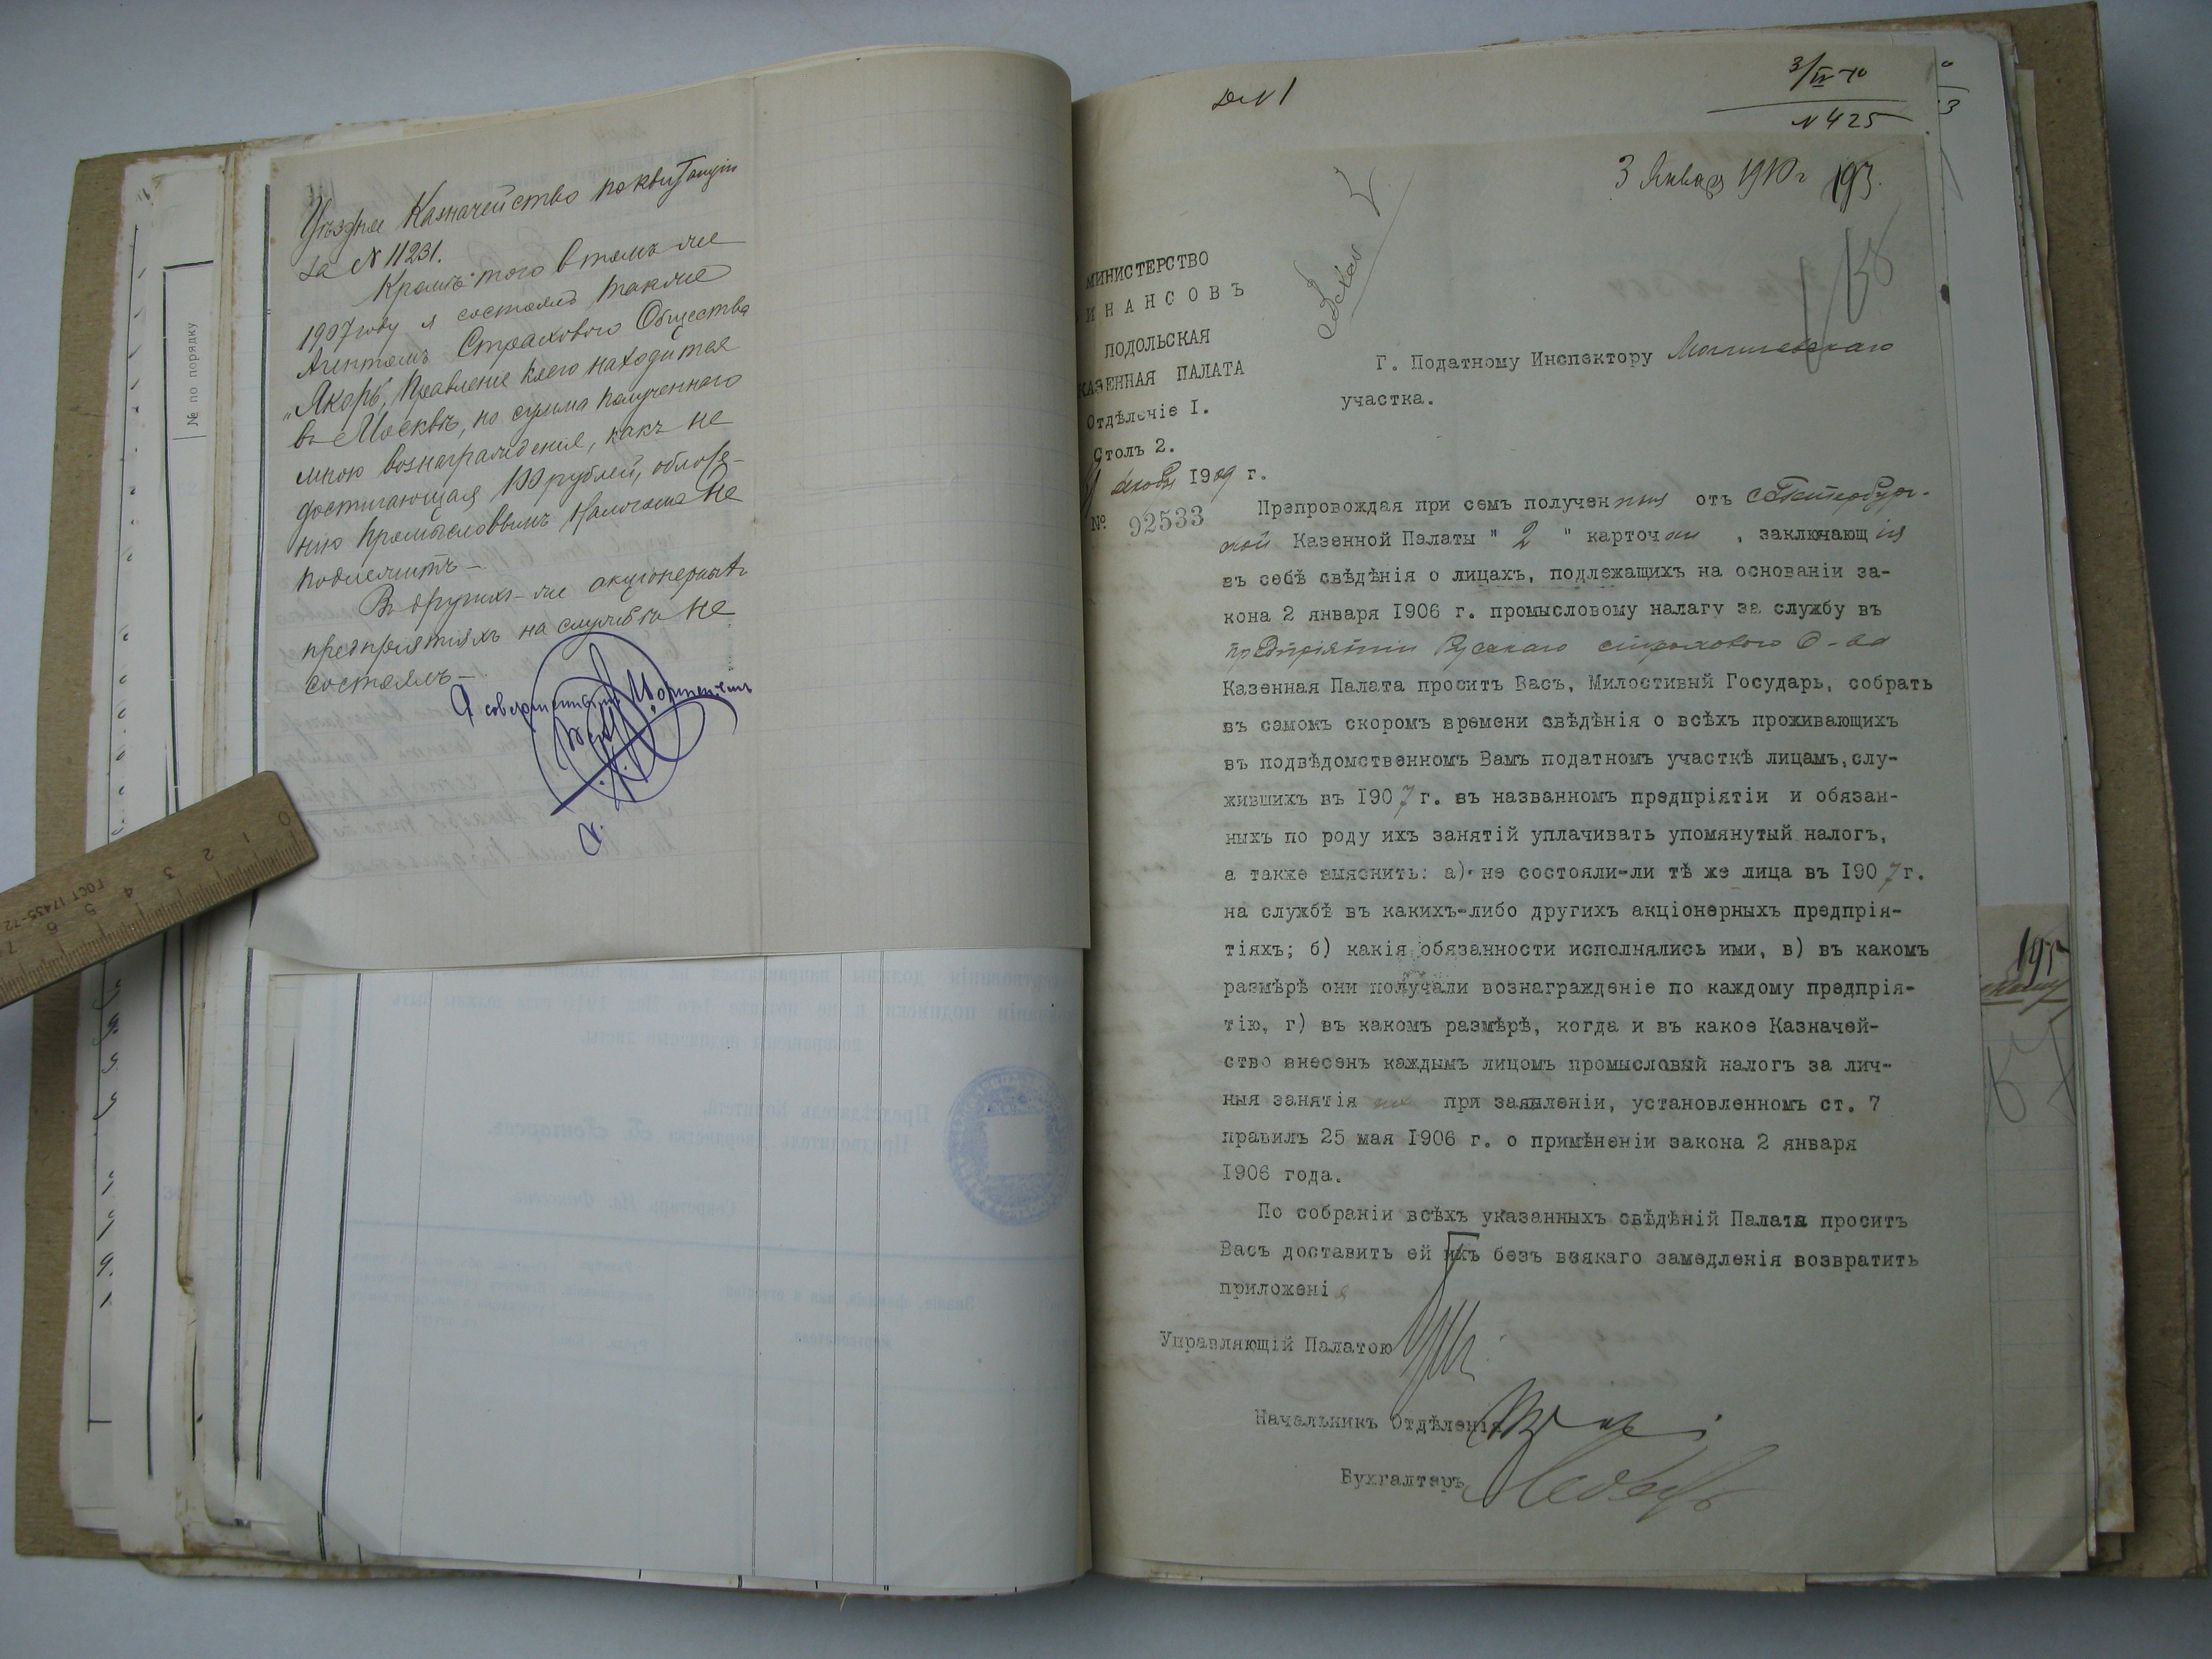 Уѣздное Казначейство по квитанціи
за № 11231.
Кромѣ того в томъ же
1907 году я состоялъ также
Агентомъ Страхового Общества
„Якорь“, Правленіе коего находится
въ Москвѣ, но сумма полученнаго
мною вознагражденія, какъ не
достигающая 100 рублей, обложе-
нію промысловымъ налогомъ не
подлежитъ.
Въ другихъ-же акціонерныхъ
предпріятіяхъ на службѣ не
состоялъ.
№ по порядку
0 1 2 3 4 5 6 7
ГОСТ 17435-72
№ 425
3 Января 1910 г 193.
МИНИСТЕРСТВО
ИНАНСОВЪ
ПОДОЛЬСКАЯ
КАЗЕННАЯ ПАЛАТА
Отдѣленіе I.
Столъ 2.
1909 г.
№ 92533
Г. Податному Инспектору Могилевскаго
участка.
Препровождая при семъ полученныя отъ С.Петербург-
ской Казенной Палаты " 2 " карточки , заключающія
въ себѣ свѣдѣнія о лицахъ, подлежащихъ на основаніи за-
кона 2 января 1906 г. промысловому налагу за службу въ
предпріятіи Русскаго страхового О-ва
Казенная Палата проситъ Васъ, Милостивый Государь, собрать
въ самомъ скоромъ времени свѣдѣнія о всѣхъ проживающихъ
въ подвѣдомственномъ Вамъ податномъ участкѣ лицамъ, слу-
жившихъ въ 1907 г. въ названномъ предпріятіи и обязан-
ныхъ по роду ихъ занятій уплачивать упомянутый налогъ,
а также выяснить: а) не состояли-ли тѣ же лица въ 1907 г.
на службѣ въ какихъ-либо другихъ акціонерныхъ предпрія-
тіяхъ; б) какія обязанности исполнялись ими, в) въ какомъ
размѣрѣ они получали вознагражденіе по каждому предпрія-
тію, г) въ какомъ размѣрѣ, когда и въ какое Казначей-
ство внесенъ каждымъ лицомъ промысловый налогъ за лич-
ныя занятія при заявленіи, установленномъ ст. 7
правилъ 25 мая 1906 г. о примѣненіи закона 2 января
1906 года.
По собраніи всѣхъ указанныхъ свѣдѣній Палата проситъ
Васъ доставить ей ихъ безъ всякаго замедленія возвратить
приложенія
Управляющій Палатою
Начальникъ Отдѣленія
Бухгалтеръ